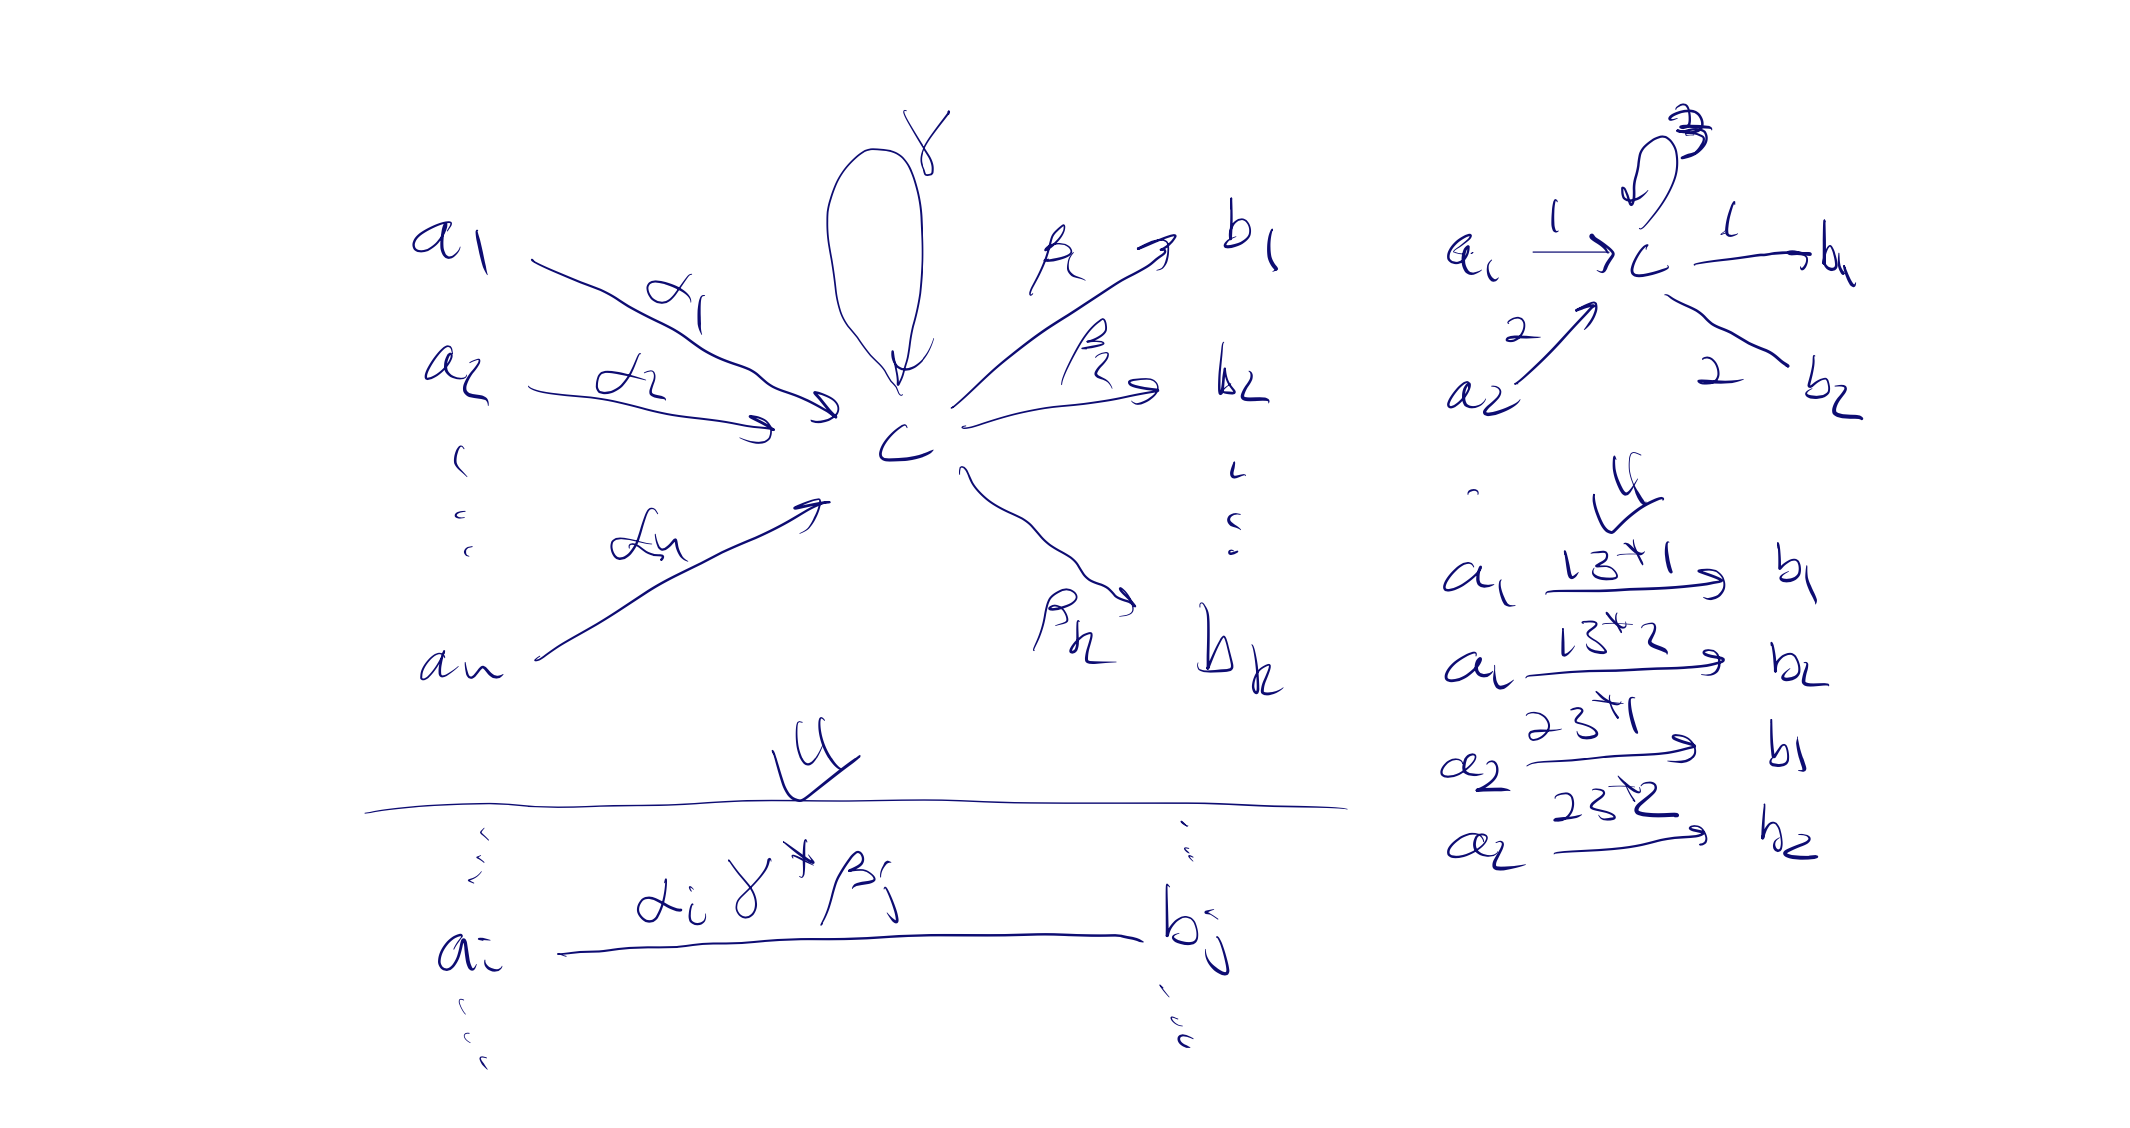 γ
a1 α1 β1 b1
a2 α2 β2 b2
c
an αn βk bk
ai αi γ* βj bj
3
a1 1 c 1 b1
a2 2 2 b2
a1 13*1 b1
a1 13*2 b2
a2 23*1 b1
a2 23*2 b2